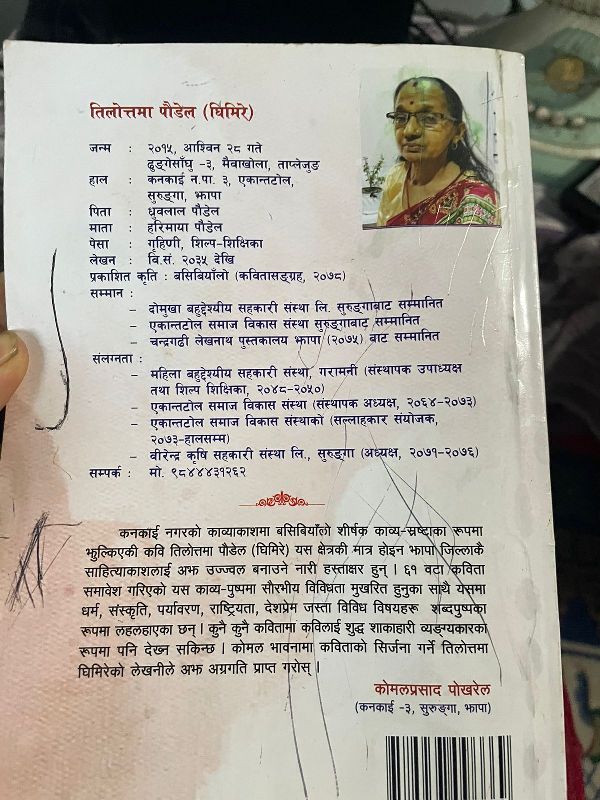 तिलोत्तमा पौडेल (घिमिरे)
जन्म : २०१५, आश्विन २८ गते
ढुङ्गेसाँघु -३, मैवाखोला, ताप्लेजुङ
हाल : कनकाई न.पा. ३, एकान्तटोल,
सुरुङ्गा, झापा
पिता : ध्रुवलाल पौडेल
माता : हरिमाया पौडेल
पेसा : गृहिणी, शिल्प-शिक्षिका
लेखन : वि.सं. २०३५ देखि
प्रकाशित कृति : बसिबियाँलो (कवितासङ्ग्रह, २०७८)
सम्मान :
– दोमुखा बहुद्देश्यीय सहकारी संस्था लि. सुरुङ्गाबाट सम्मानित
– एकान्तटोल समाज विकास संस्था सुरुङ्गाबाट सम्मानित
– चन्द्रगढी लेखनाथ पुस्तकालय झापा (२०७५) बाट सम्मानित
संलग्नता :
– महिला बहुद्देश्यीय सहकारी संस्था, गरामनी (संस्थापक उपाध्यक्ष
तथा शिल्प शिक्षिका, २०४८-२०५०)
– एकान्तटोल समाज विकास संस्था (संस्थापक अध्यक्ष, २०६४-२०७३)
– एकान्तटोल समाज विकास संस्थाको (सल्लाहकार संयोजक,
२०७३-हालसम्म)
– वीरेन्द्र कृषि सहकारी संस्था लि., सुरुङ्गा (अध्यक्ष, २०७१-२०७६)
सम्पर्क : मो. ९८४४४३१२६२
कनकाई नगरको काव्याकाशमा बसिबियाँलो शीर्षक काव्य-स्रष्टाका रूपमा
झुल्किएकी कवि तिलोत्तमा पौडेल (घिमिरे) यस क्षेत्रकी मात्र होइन झापा जिल्लाकै
साहित्याकाशलाई अझ उज्ज्वल बनाउने नारी हस्ताक्षर हुन् । ६१ वटा कविता
समावेश गरिएको यस काव्य-पुष्पमा सौरभीय विविधता मुखरित हुनुका साथै यसमा
धर्म, संस्कृति, पर्यावरण, राष्ट्रियता, देशप्रेम जस्ता विविध विषयहरू शब्दपुष्पका
रूपमा लहलहाएका छन् । कुनै कुनै कवितामा कविलाई शुद्ध शाकाहारी व्यङ्ग्यकारका
रूपमा पनि देख्न सकिन्छ । कोमल भावनामा कविताको सिर्जना गर्ने तिलोत्तमा
घिमिरेको लेखनीले अझ अग्रगति प्राप्त गरोस् ।
कोमलप्रसाद पोखरेल
(कनकाई -३, सुरुङ्गा, झापा)